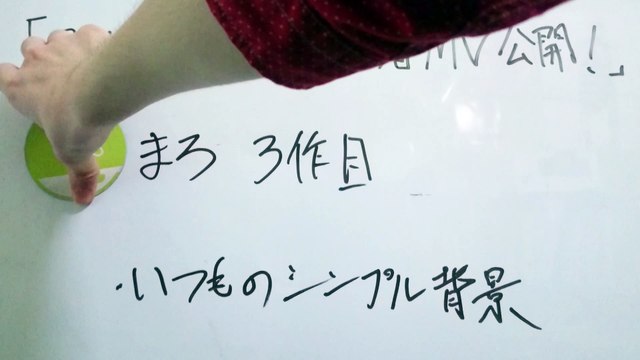 「
MV公開!」
まろ 3作目
・いつものシンプル背景